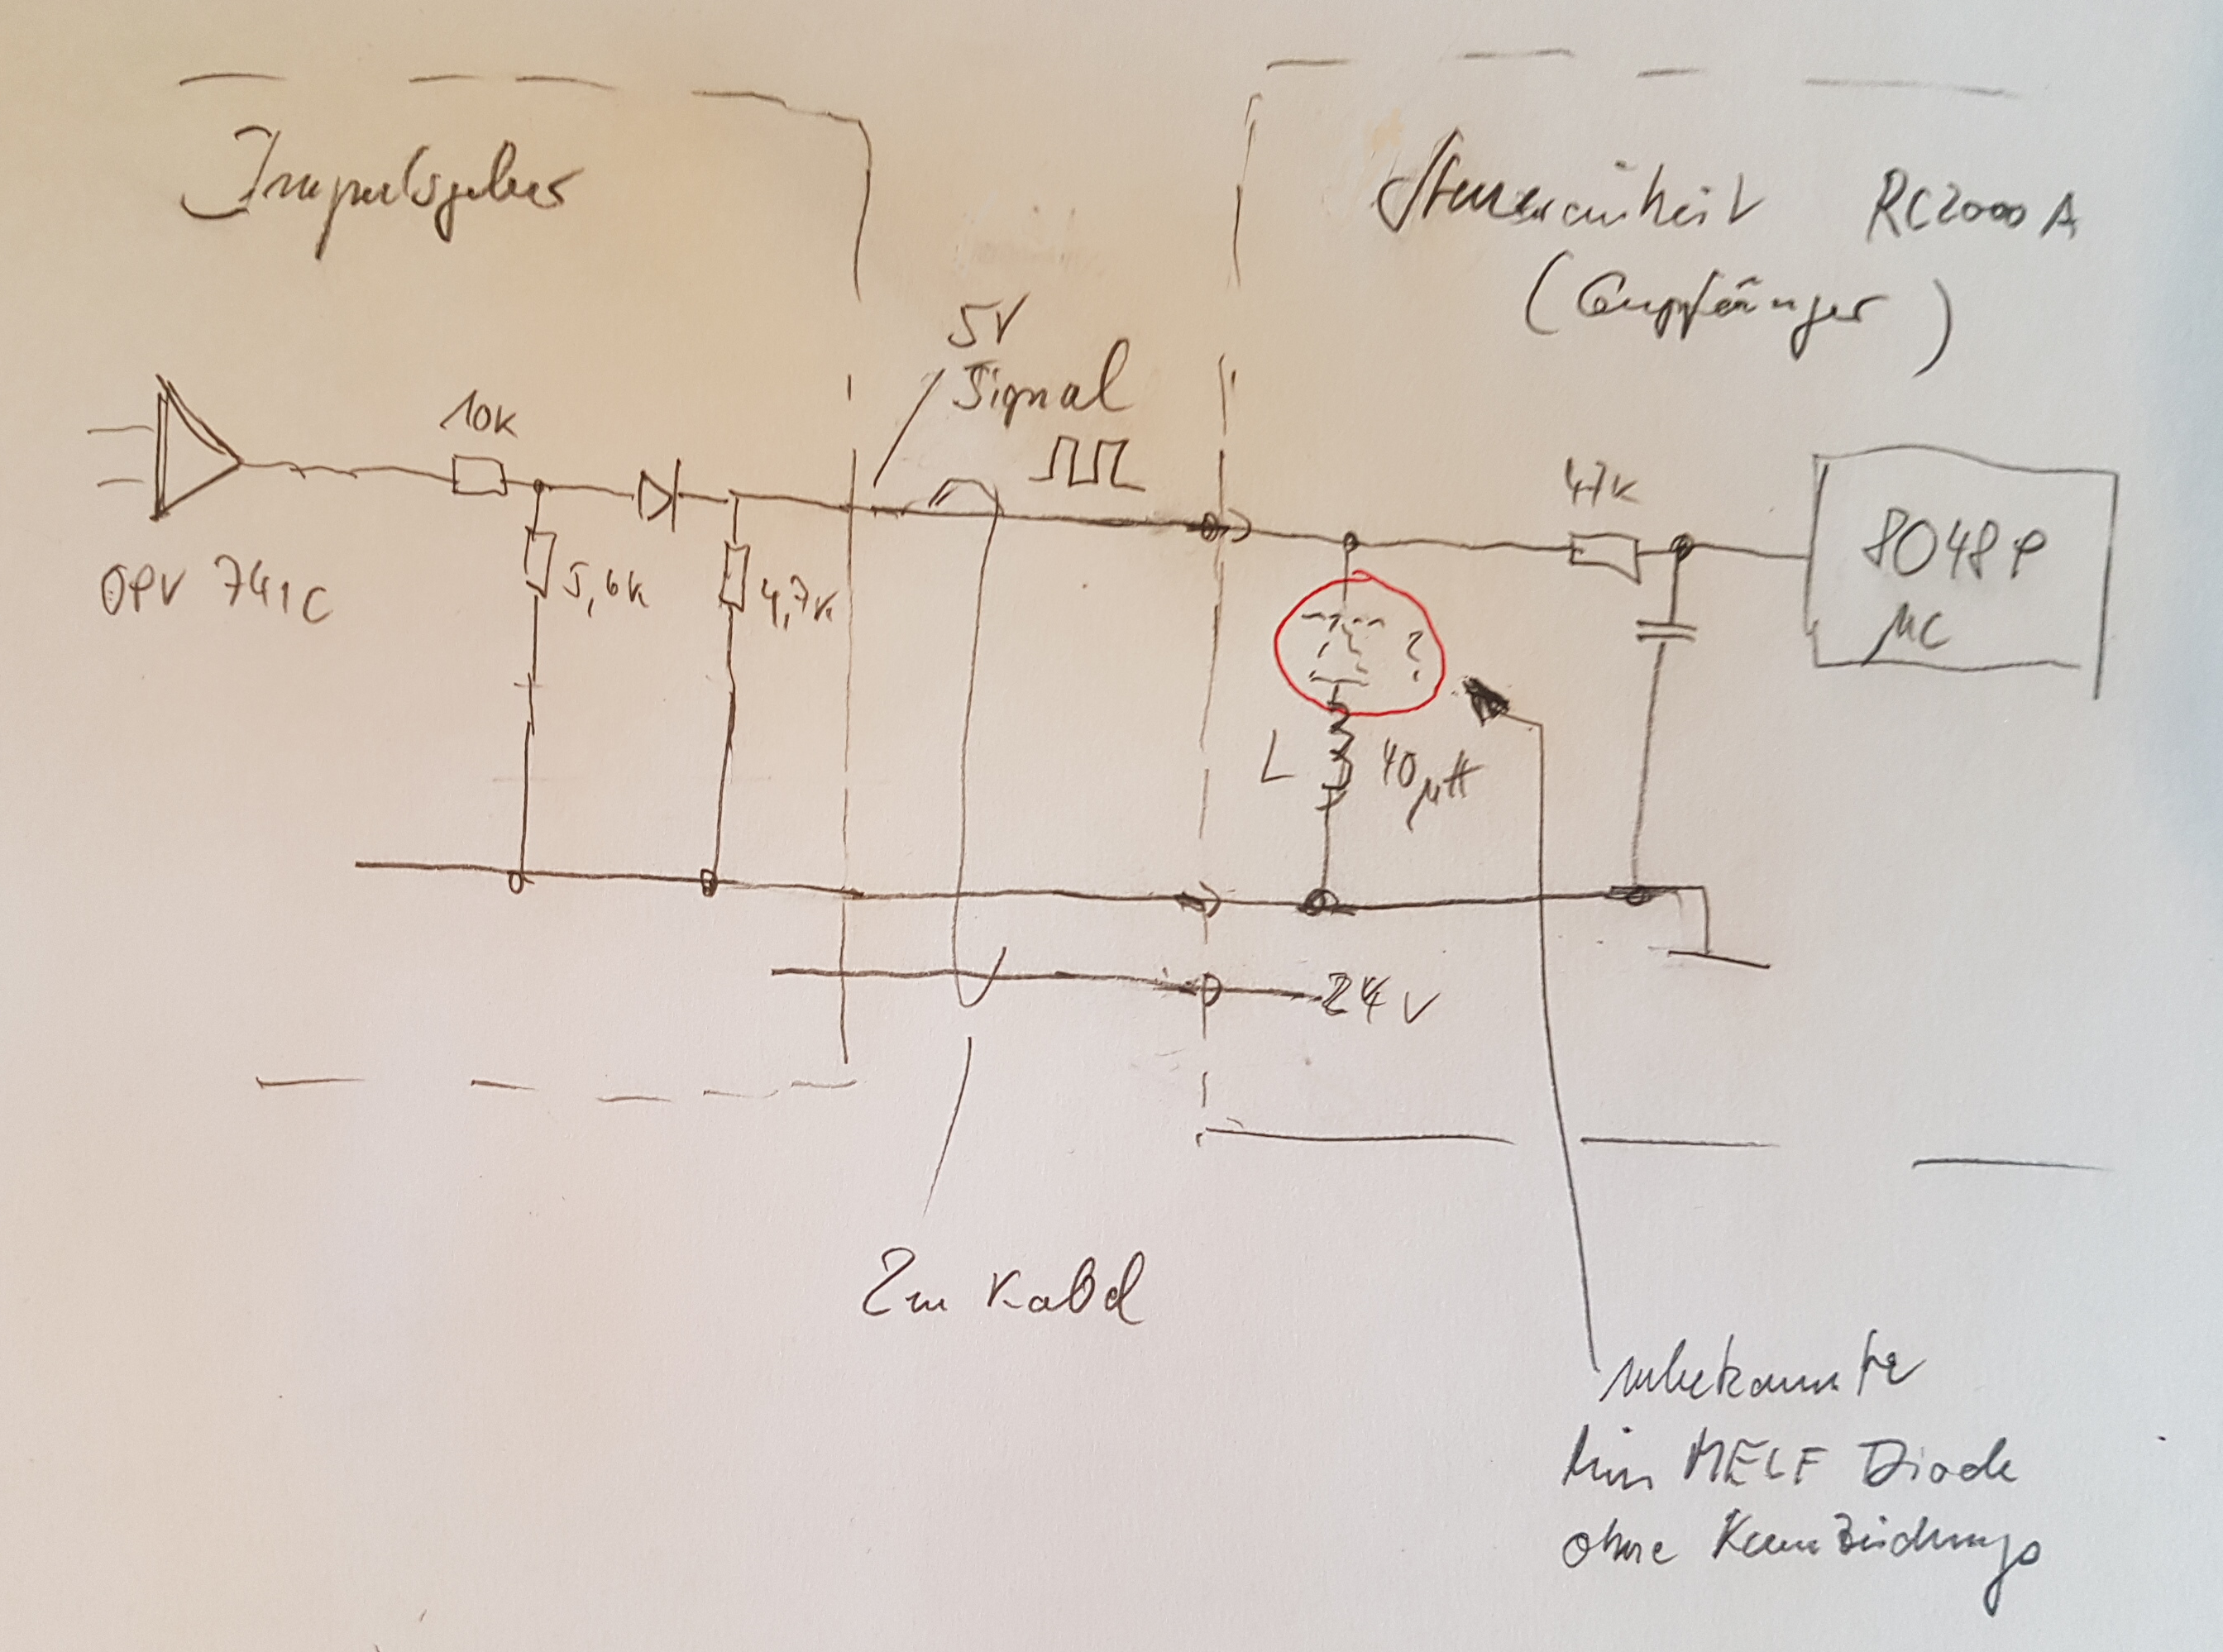 Impulsgeber
Steuereinheit RC2000A
(Empfänger)
5V
Signal
10K
47K
OPV 741C
5,6K
4,7K
8048P
µC
?
L
40µH
24V
2m Kabel
unbekannte
Mini MELF Diode
ohne Kennzeichnung